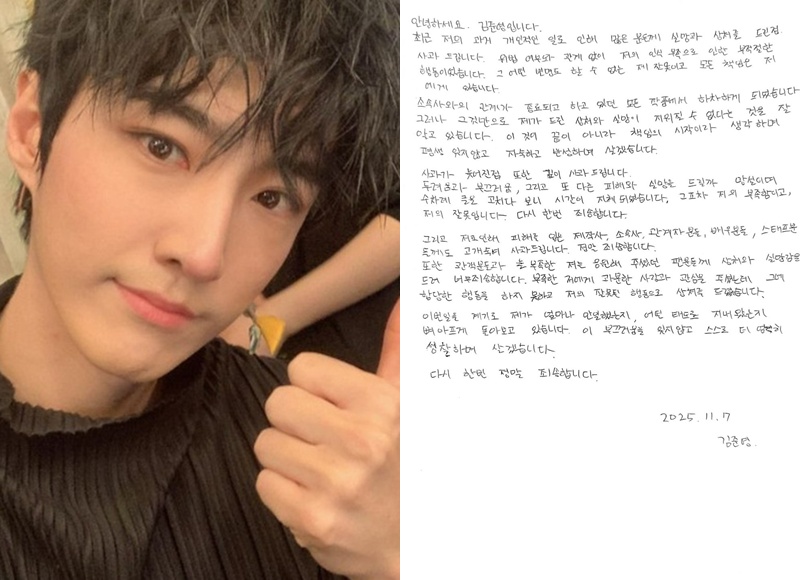 안녕하세요. 김준영입니다.
최근 저의 과거 개인적인 일로 인해 많은 분들께 실망과 상처를 드린점
사과 드립니다. 위법 여부와 관계 없이 저의 인식 부족으로 인한 부적절한
행동이었습니다. 그 어떤 변명도 할 수 없는 제 잘못이고 모든 책임은 저
에게 있습니다.
소속사와의 관계가 종료되고 하고 있던 모든 작품에서 하차하게 되었습니다
그러나 그것만으로 제가 드린 상처와 실망이 지워질 수 없다는 것을 잘
알고 있습니다. 이 것이 끝이 아니라 책임의 시작이라 생각하며
평생 잊지않고 자숙하고 반성하며 살겠습니다.
사과가 늦어진점 또한 깊이 사과드립니다.
두려움과 부끄러움, 그리고 또 다른 피해와 실망을 드릴까 망설이며
수차례 글을 고치다 보니 시간이 지체 되었습니다. 그조차 저의 부족함이고,
저의 잘못입니다. 다시 한번 죄송합니다.
그리고 저로인해 피해를 입은 제작사, 소속사, 관계자분들, 배우분들, 스태프분
들께도 고개숙여 사과드립니다. 정말 죄송합니다.
또한 관객분들과 늘 부족한 저를 응원해 주셨던 팬분들께 상처와 실망감을
드려 너무죄송합니다. 부족한 저에게 과분한 사랑과 관심을 주셨는데 그에
합당한 행동을 하지 못하고 저의 잘못된 행동으로 상처를 드렸습니다.
이번일을 계기로 제가 얼마나 안일했는지, 어떤 태도로 지내왔는지
뼈아프게 돌아보고 있습니다. 이 부끄러움을 잊지않고 스스로 더 엄격히
성찰하며 살겠습니다.
다시 한번 정말 죄송합니다.
2025. 11. 7
김준영.